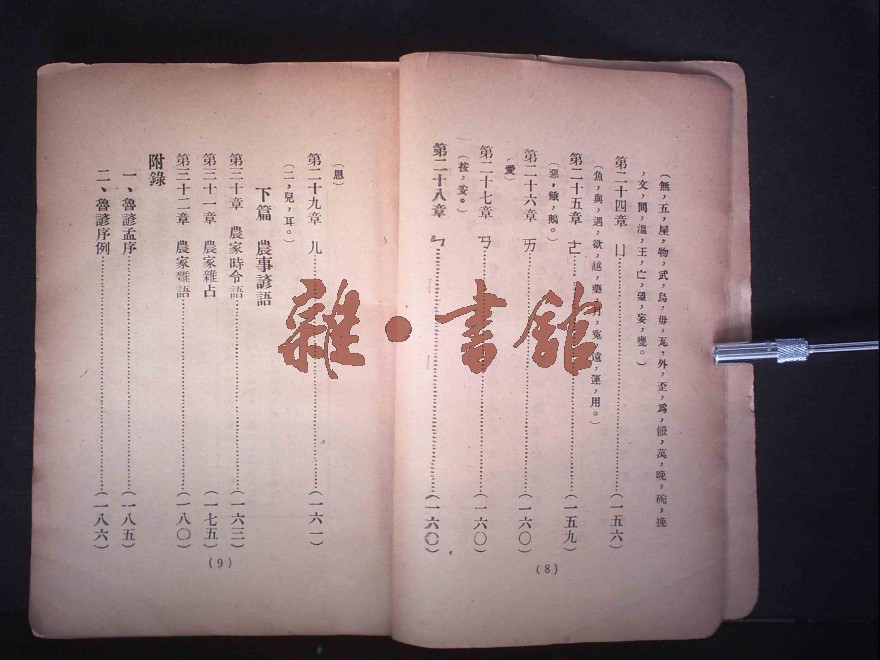 (無,五,屋,物,武,烏,毋,瓦,外,歪,爲,餵,萬,晚,碗,挽
,文,問,溫,王,亡,望,妄,甕。)
第二十四章 ㄩ……(一五六)
(魚,與,遇,欲,越,藥,月,寃,遠,運,用。)
第二十五章 ㄜ……(一五九)
(惡,餓,鵝。)
第二十六章 ㄞ……(一六〇)
(愛)
第二十七章 ㄢ……(一六〇)
(按,安。)
第二十八章 ㄣ……(一六〇)
(8)
(恩)
第二十九章 ㄦ……(一六一)
(二,兒,耳。)
下篇 農事諺語
第三十章 農家時令語……(一六三)
第三十一章 農家雜占……(一七五)
第三十二章 農家雜語……(一八〇)
附錄
一、魯諺孟序……(一八五)
二、魯諺序例……(一八六)
(9)
雜·書館